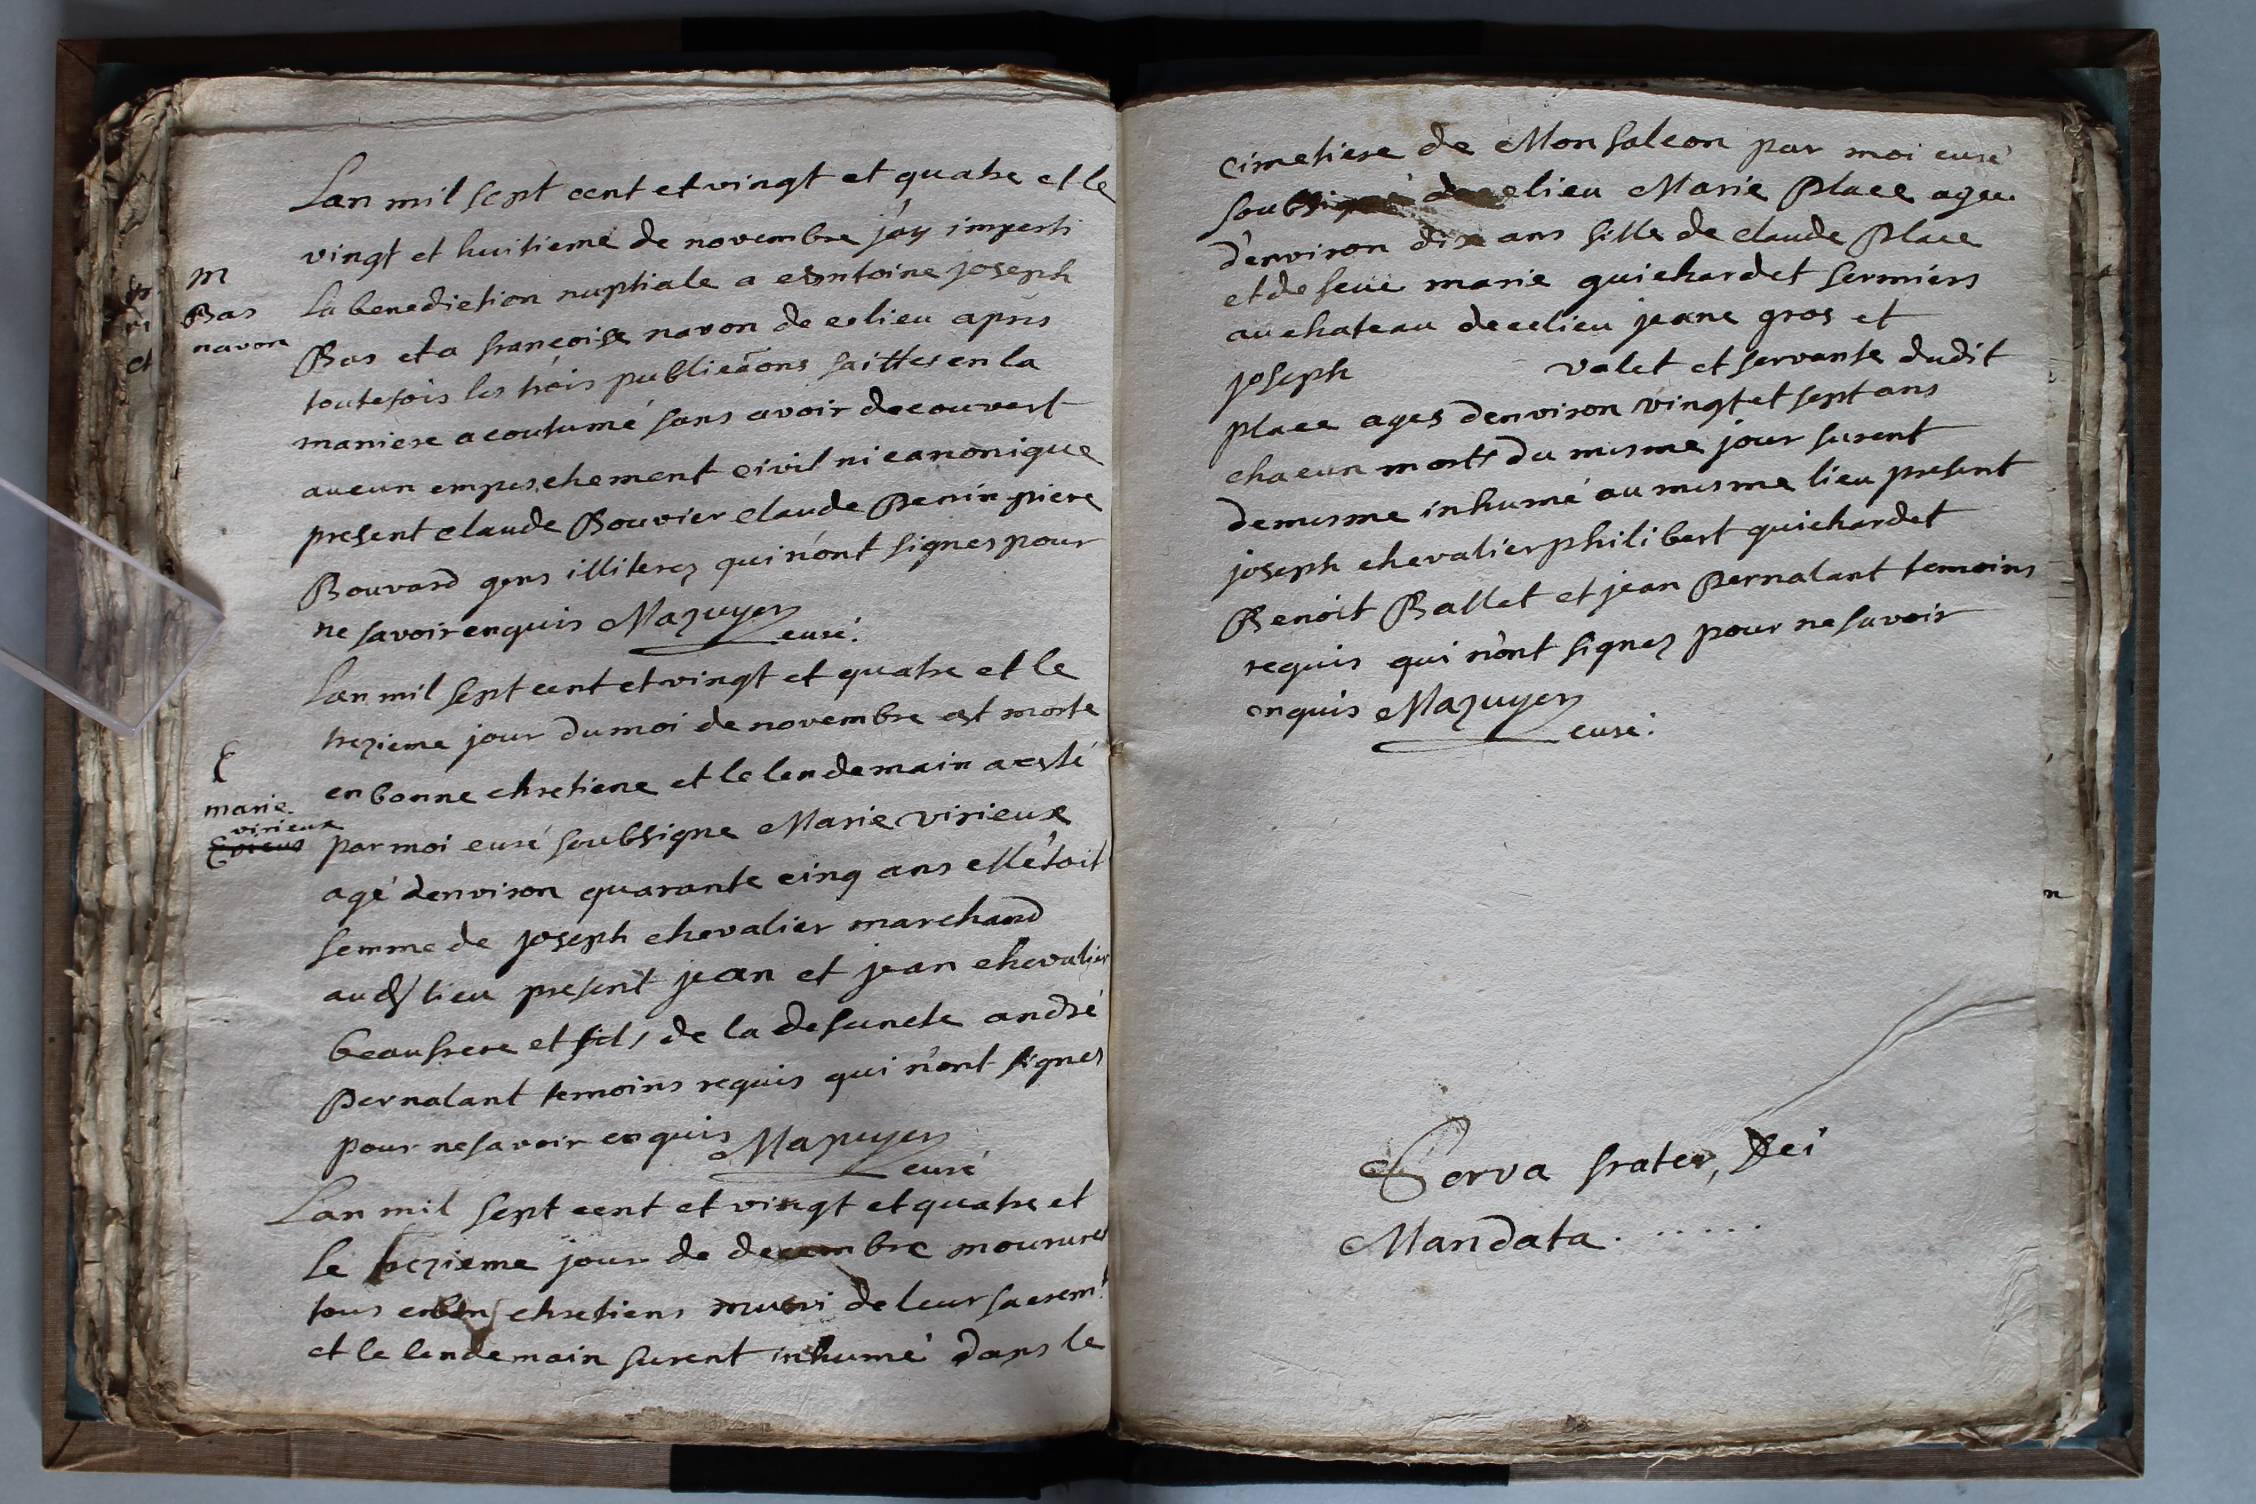 Lan mil sept cent et vingt et quatre et le
vingt et huitieme de novembre j'ay imparti
M
la benediction nuptiale a antoine joseph
Bas
navon
Bas et a francoise navon de ce lieu apres
toutefois les trois publicãons faittes en la
maniere acoutumé sans avoir decouvert
aucun empeschement civil ni canonique
present claude Bouvier claude Perrin piere
Bouvard gens illiterez qui n'ont signes pour
ne savoir enquis Mazuyer
curé.
Lan mil sept cent et vingt et quatre et le
trezieme jour du moi de novembre est morte
en bonne chretiene et le lendemain a esté
marie
virieux
par moi curé soubsigne Marie virieux
agé denviron quarante cinq ans ell'étoit
femme de joseph chevalier marchand
aud lieu present jean et jean chevalier
beaufrere et fils de la defuncte andré
Pernalant temoins requis qui n'ont signes
pour ne savoir enquis Mazuyer
curé
Lan mil sept cent et vingt et quatre et
le trezieme jour de decembre moururet
tous en bons chretiens muni de leur sacrem.t
et le lendemain furent inhumé dans le
cimetiere de Monsaleon par moi curé
soubsigné de ce lieu Marie Place agee
d'environ dix ans fille de claude Place
et de feüe marie guichardet fermiers
au chateau de ce lieu jeane gros et
joseph valet et servante dudit
place ages denviron vingt et sept ans
chacun morts du mesme jour furent
de mesme inhumé au mesme lieu present
joseph chevalier philibert guichardet
Benoit Ballet et jean Pernalant temoins
requis qui n'ont signez pour ne savoir
enquis Mazuyer
curé.
Serva frater, Dei
Mandata. . . . . .